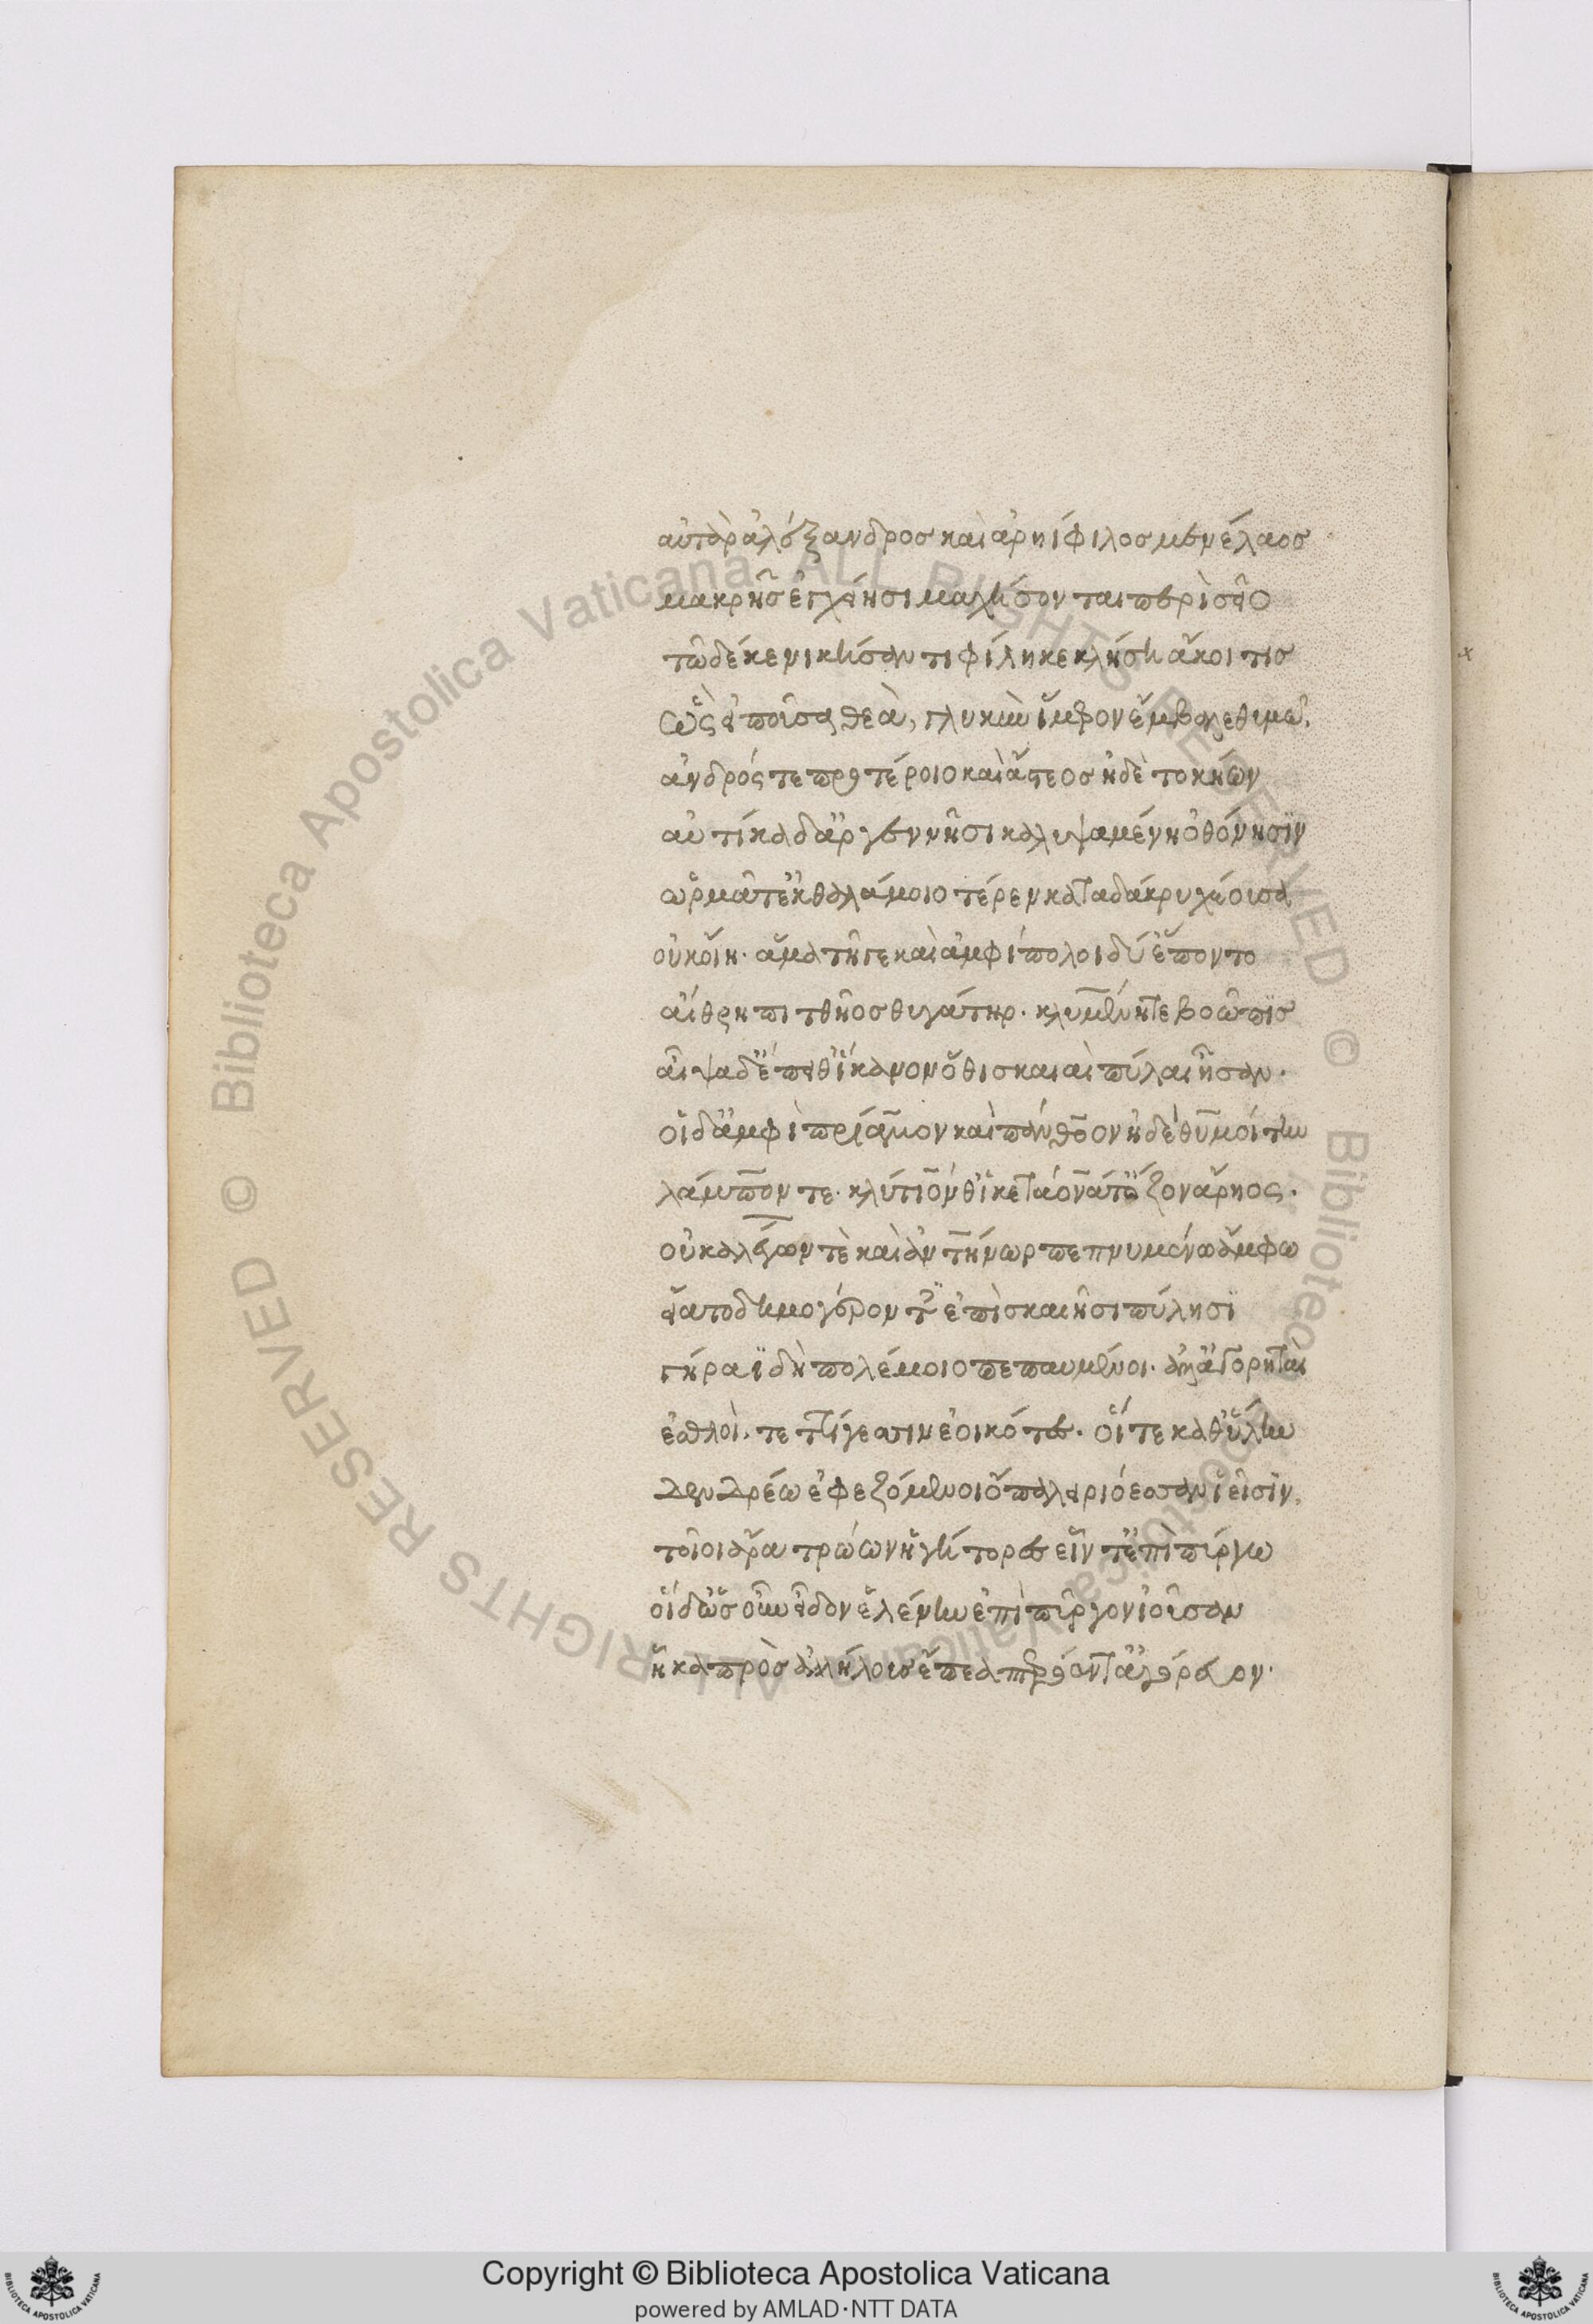 αὐτὰρ ἀλέξανδρος καὶ ἀρηίφιλος μενέλαος
μακρῆς ἐγχείησι μαχήσονται περὶ σεῖο
τῶ δέ κε νικήσαντι φίλη κεκλήσῃ ἄκοιτις
ὣς εἰποῦσα θεὰ, γλυκὺν ἵμερον ἔμβαλε θυμῶ,
ἀνδρός τε προτέροιο καὶ ἄστεος ἠδὲ τοκήων
αὐτίκα δ' ἀργεννῆσι καλυψαμένη ὀθόνησιν
ὡρμᾶτ' ἐκ θαλάμοιο τέρεν κατὰ δάκρυ χέουσα
οὐκ οἴη· ἅμα τῆγε καὶ ἀμφίπολοι δύ' ἕποντο
αἴθρη πιτθῆος θυγάτηρ· κλυμένη τε βοῶπις
αἶψα δ' ἔπειθ' ἵκανον ὅθι σκαιαὶ πύλαι ἦσαν·
οἱ δ' ἀμφὶ πρίαμον καὶ πάνθοον ἠδὲ θυμοίτην
λάμπον τε· κλυτίον θ' ἱκετάονά τ' ὄζον ἄρηος·
οὐκαλέγων τὲ καὶ ἀντήνωρ πεπνυμένω ἄμφω
εἵατο δημογέροντες ἐπὶ σκαιῆσι πύλησι
γήραϊ δὴ πολέμοιο πεπαυμένοι· ἀλλ' ἀγορηταὶ
ἐσθλοὶ, τεττίγεσσιν ἐοικότες· οἵ τε καθ' ὕλην
δενδρέω ἐφεζόμενοι ὄπα λειριόεσσαν ἱεῖσιν,
τοῖοι ἄρα τρώων ἡγήτορες εἷντ' ἐπὶ πύργω
οἱ δ' ὡς οὖν εἶδον ἑλένην ἐπὶ πύργον ἰοῦσαν
ἦκα πρὸς ἀλλήλους ἔπεα πτερόεντ' ἀγόρευον·
Copyright © Biblioteca Apostolica Vaticana
powered by AMLAD·NTT DATA